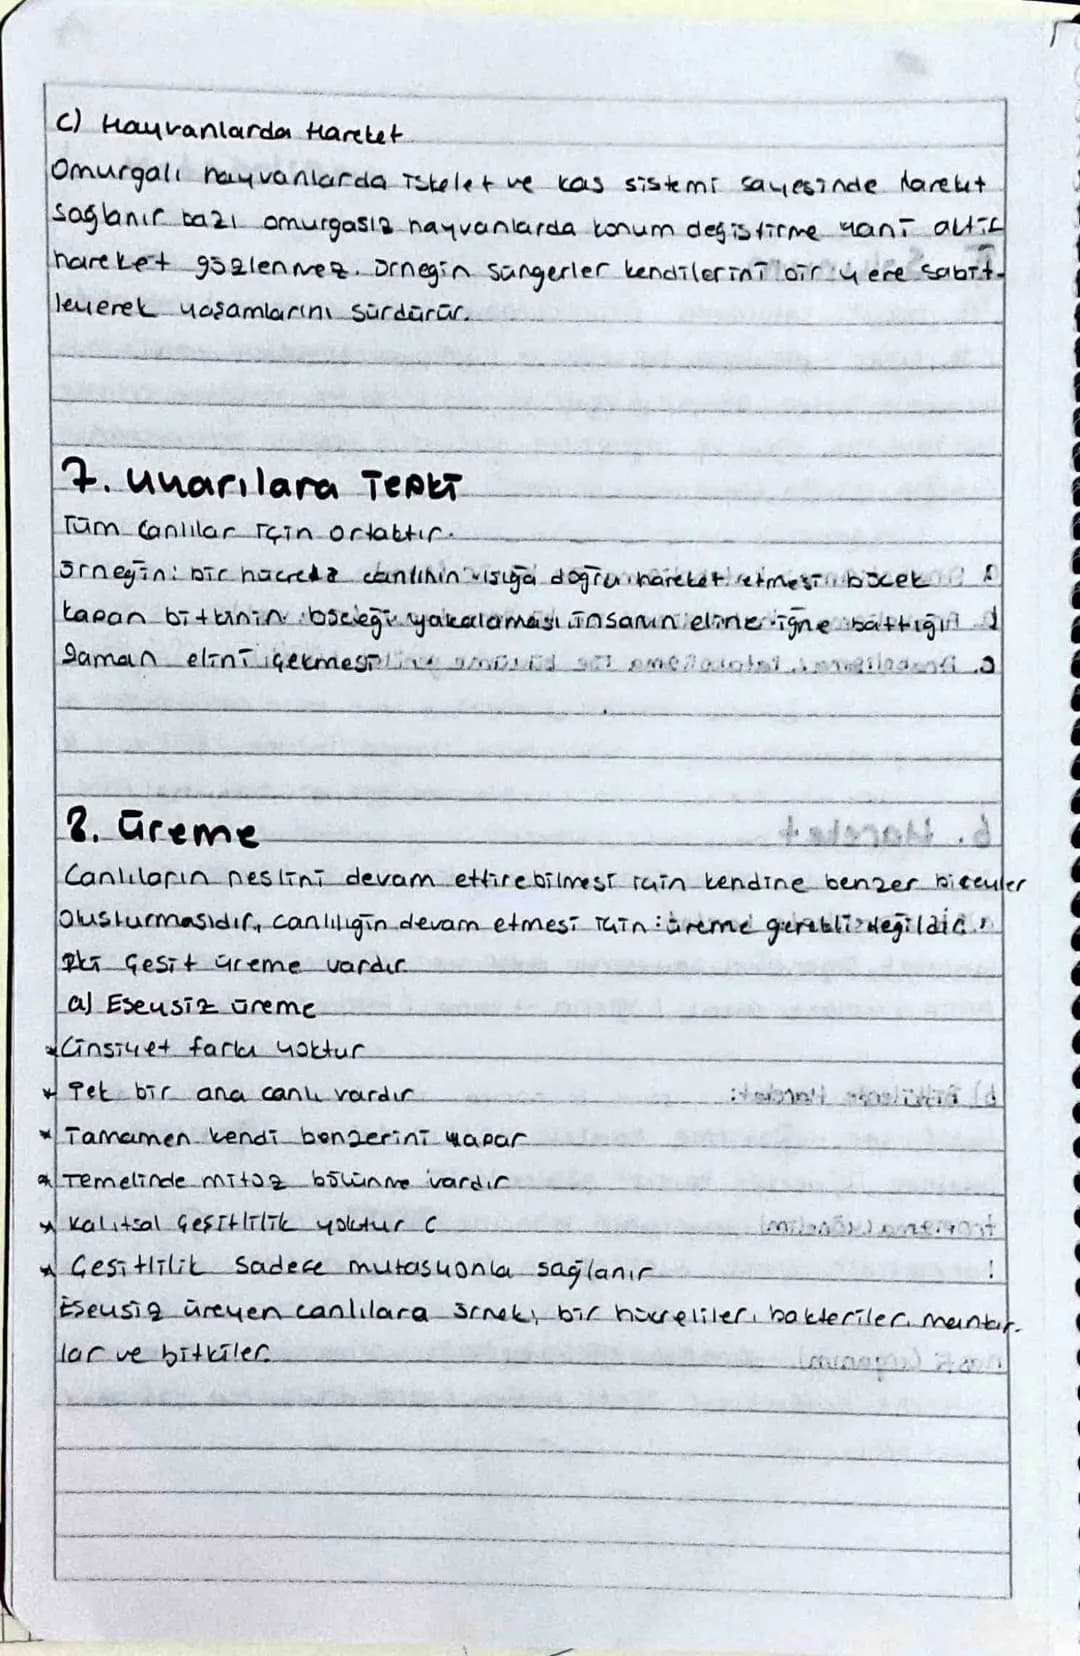 c) Hayvanlarda Hareket
Omurgalı hayvanlarda iskelet ve kas sistemi sayesinde hareket
sağlanır bazı omurgasız hayvanlarda konum değiştirme yani aktif
hareket gözlenmez. örnegin süngerler kendilerini bir yere sabit-
leyerek yaşamlarını sürdürür.
7. uyarılara Tepki
Tüm canlılar için ortaktır.
örneğin: bir hücreli canlının ışığa doğru hareket etmesi böcek
kapan bitkinin böceği yakalaması insanın eline iğne battığın
zaman elini çekmesi
8. üreme
Canlıların neslini devam ettirebilmesi için kendine benzer bireyler
oluşturmasıdır, canlılığın devam etmesi için üreme gerekli değildir.
İki çeşit üreme vardır
a) Eşeysiz üreme
* Cinsiyet farkı yoktur
* Tek bir ana canlı vardır
* Tamamen kendi benzerini yapar
* Temelinde mitoz bölünme vardır
* Kalıtsal çeşitlilik yoktur C
* Çeşitlilik sadece mutasyonla sağlanır
Eşeysiz üreyen canlılara örnek, bir hücreliler, bakteriler, mantar-
lar ve bitkiler.